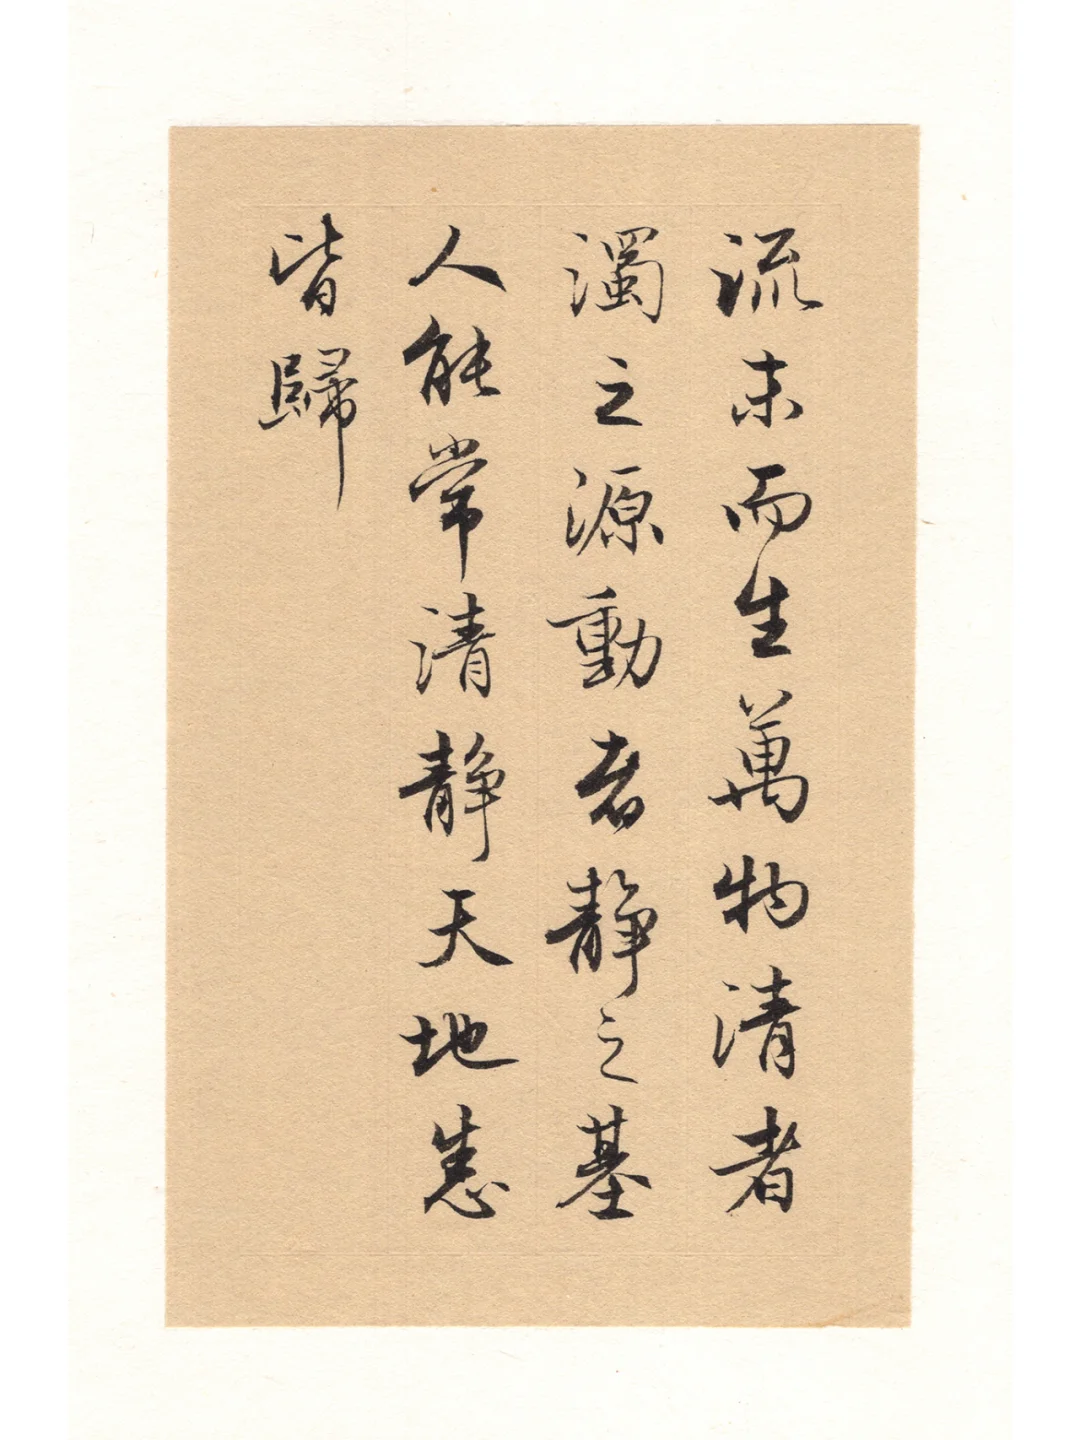 流末而生萬物清者
濁之源動者靜之基
人能常清靜天地悉
皆歸